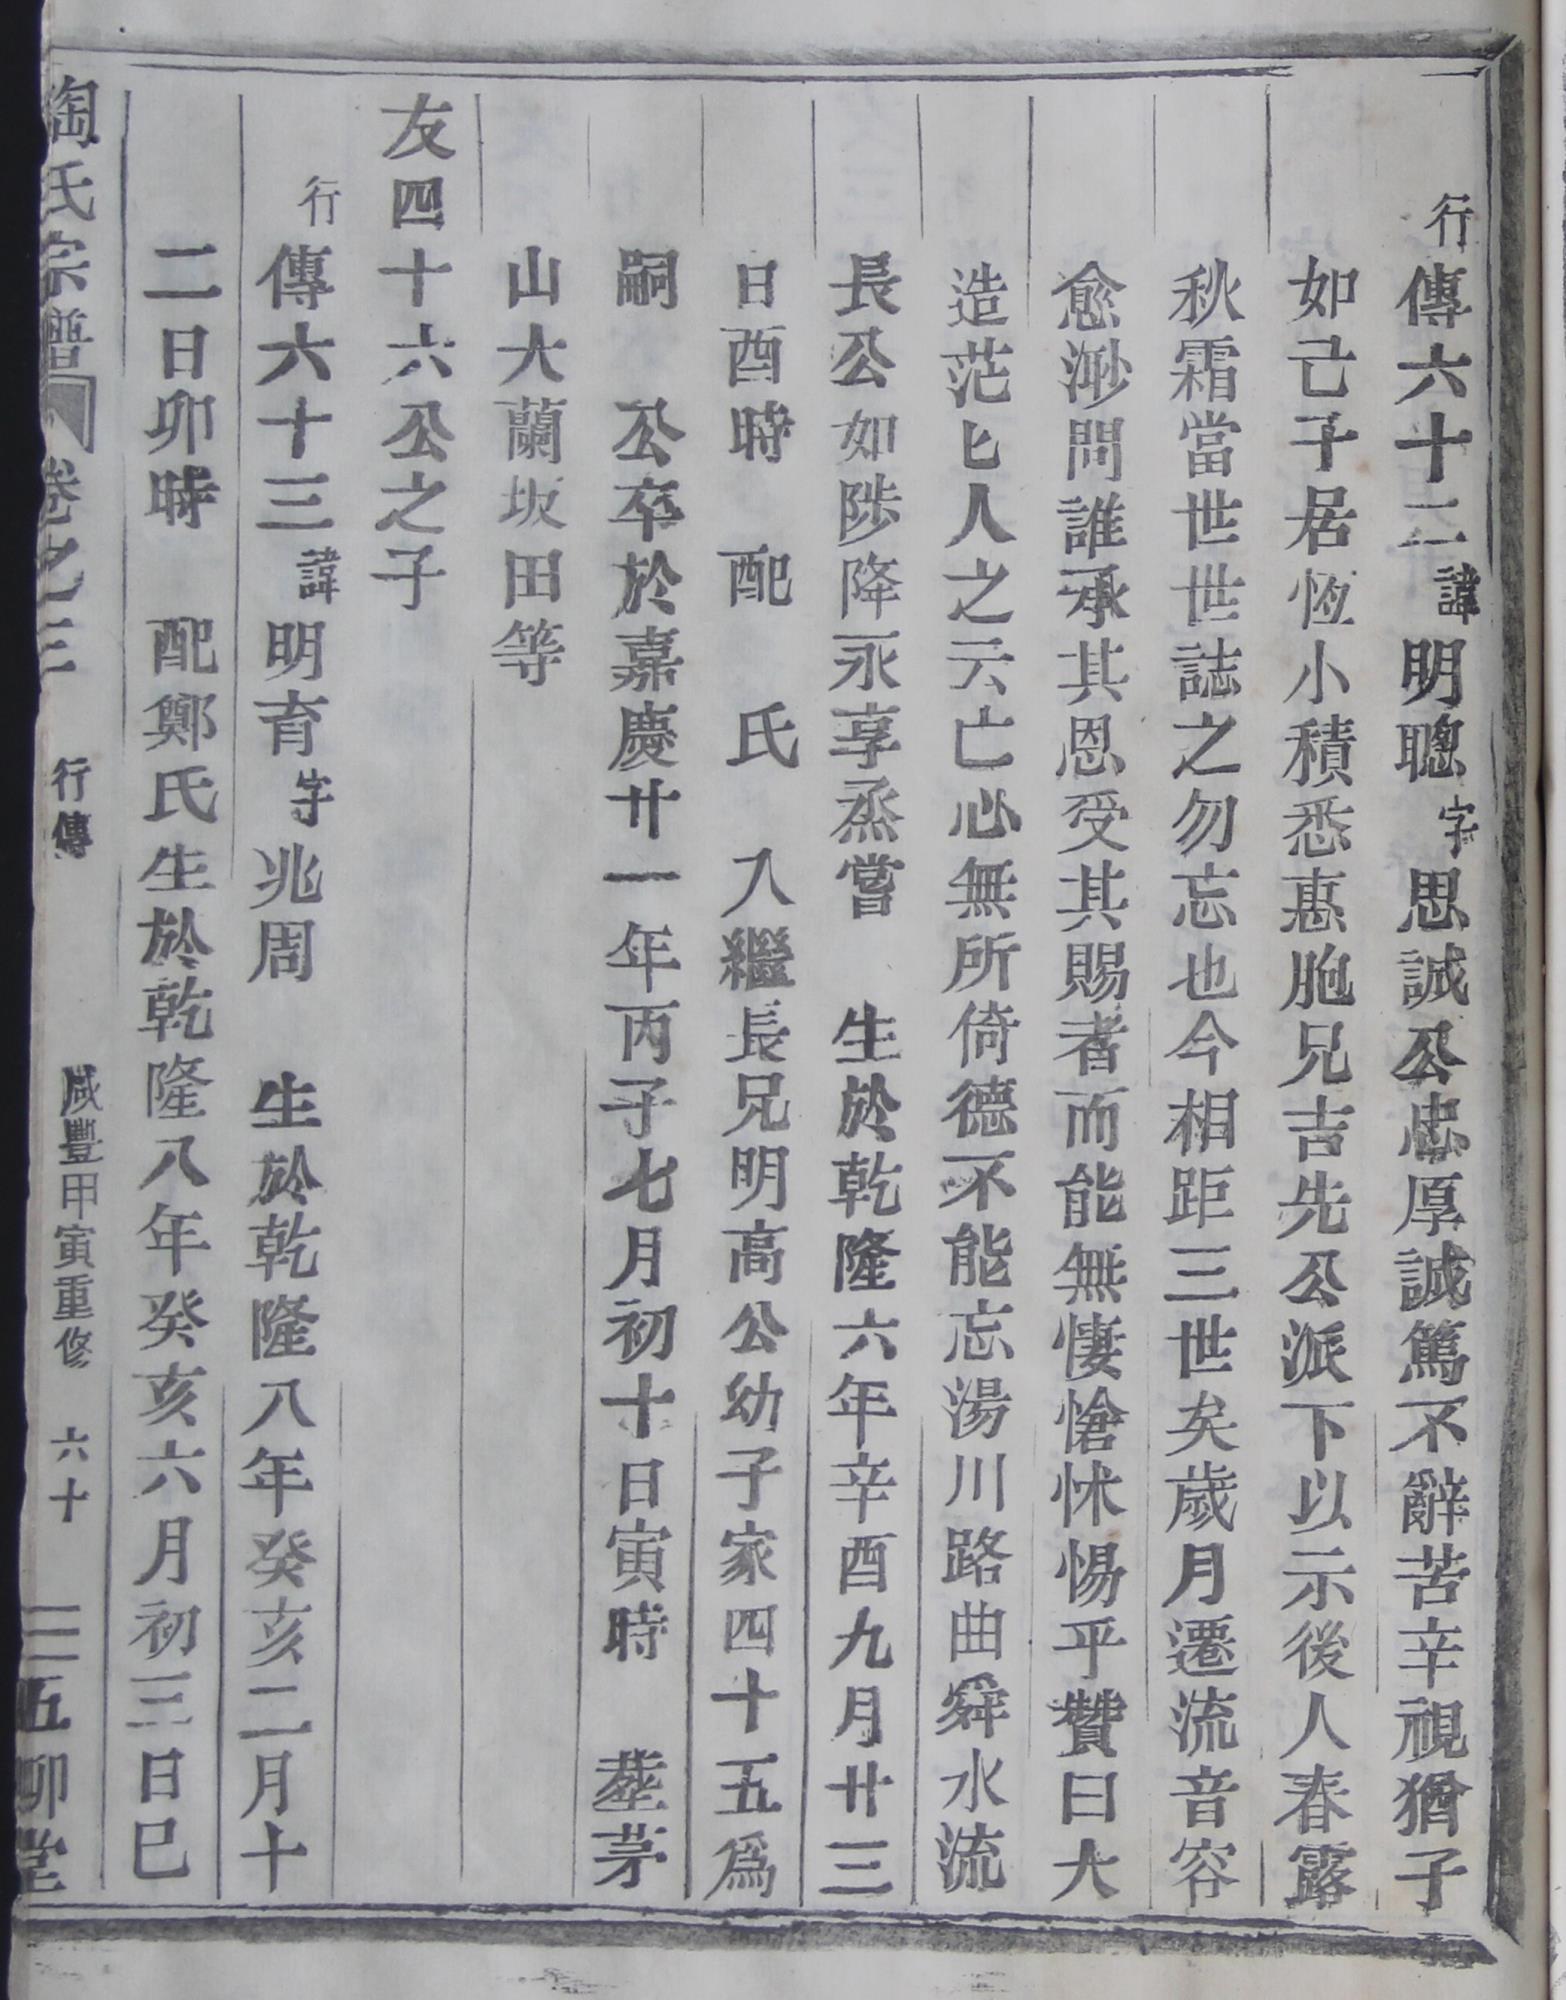 行傳六十二諱明聰字思誠公忠厚誠篤不辭苦辛視猶子
如己子居恆小積悉惠胞兄吉先公派下以示後人春露
秋霜當世世誌之勿忘也今相距三世矣歲月遷流音容
愈渺問誰承其恩受其賜者而能無悽愴怵惕乎贊曰大
造茫匕人之云亡心無所倚德不能忘湯川路曲舜水流
長公如陟降永享烝嘗　生於乾隆六年辛酉九月廿三
日酉時　配　氏　入繼長兄明高公幼子家四十五爲
嗣　公卒於嘉慶廿一年丙子七月初十日寅時　塟茅
山大蘭坂田等
友四十六公之子
行傳六十三諱明育字兆周　生於乾隆八年癸亥二月十
二日卯時　配鄭氏生於乾隆八年癸亥六月初三日巳
陶氏宗譜　卷之三　行傳　咸豐甲寅重修　六十　五柳堂